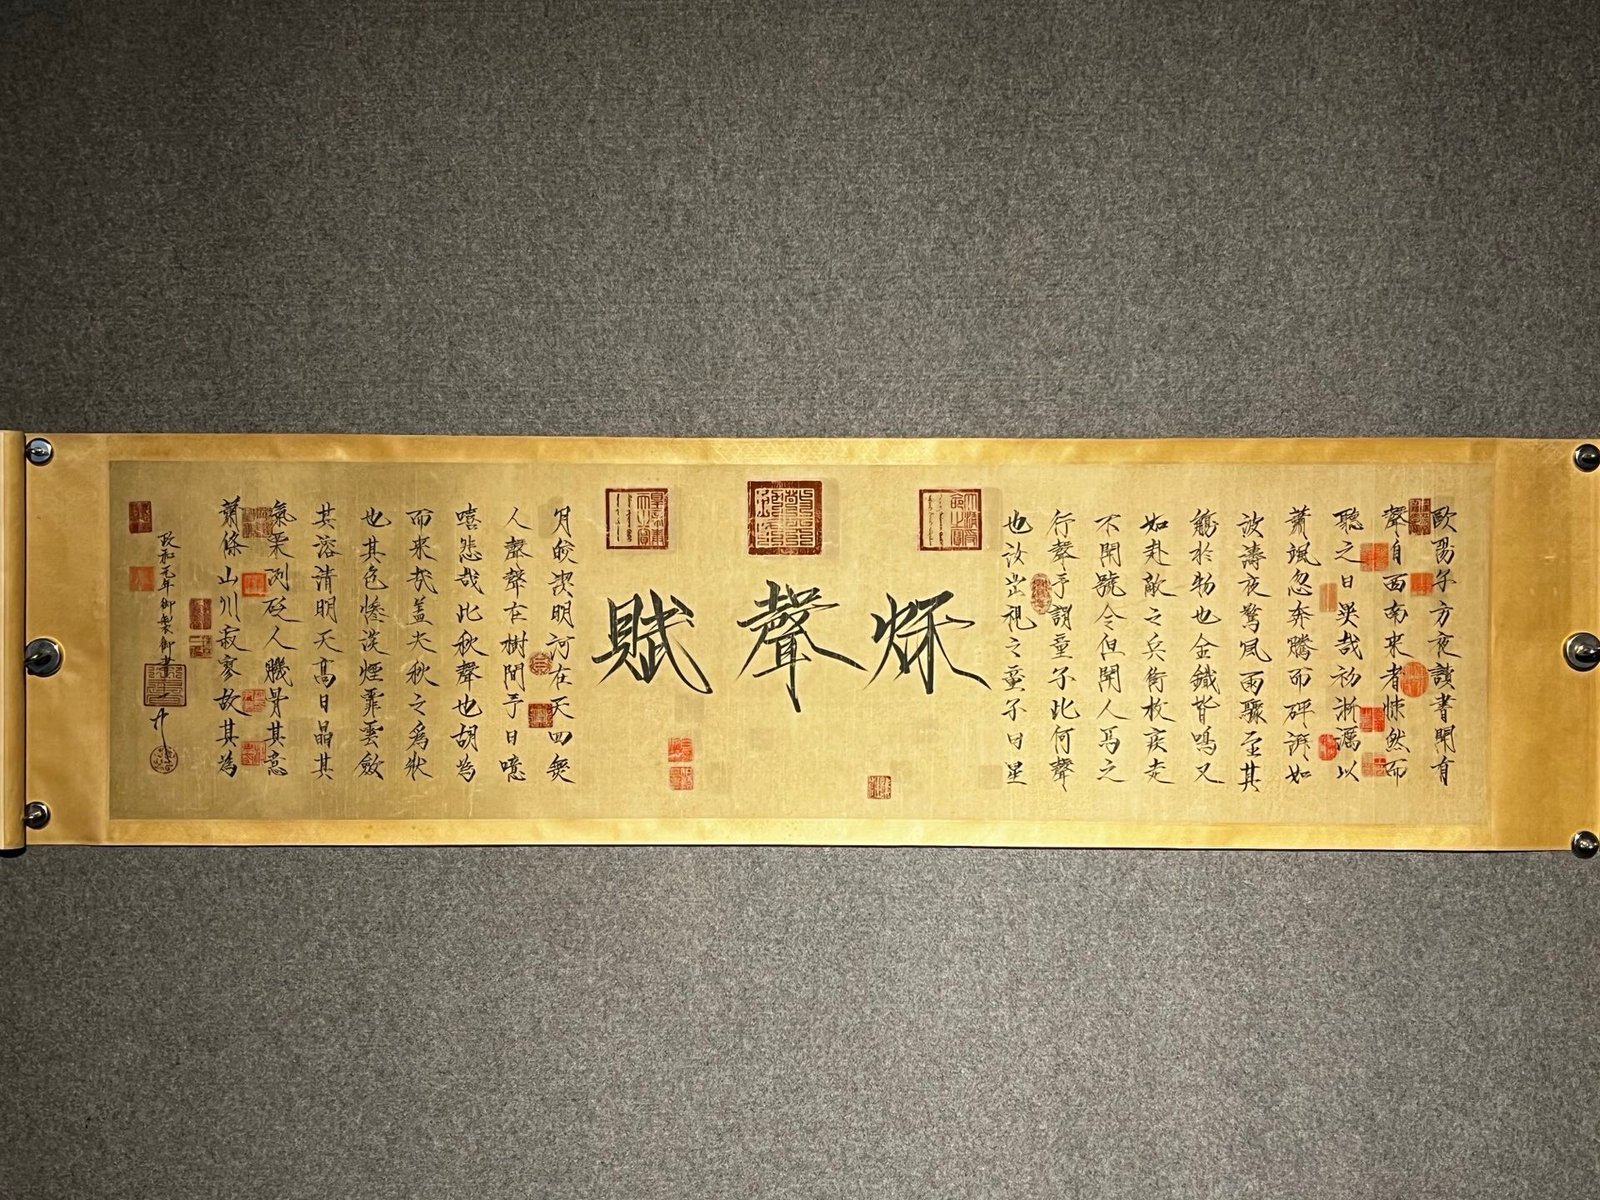 歐陽子方夜讀書聞有
聲自西南來者悚然而
聽之曰異哉初淅瀝以
蕭颯忽奔騰而砰湃如
波濤夜驚風雨驟至其
觸於物也金鐵皆鳴又
如赴敵之兵銜枚疾走
不聞號令但聞人馬之
行聲予謂童子此何聲
也汝出視之童子曰星
秌聲賦
月皎潔明河在天四無
人聲聲在樹間予曰噫
嘻悲哉此秋聲也胡為
而來哉蓋夫秋之為狀
也其色慘淡煙霏雲斂
其容清明天高日晶其
氣栗冽砭人肌骨其意
蕭條山川寂寥故其為
政和元年御製御書